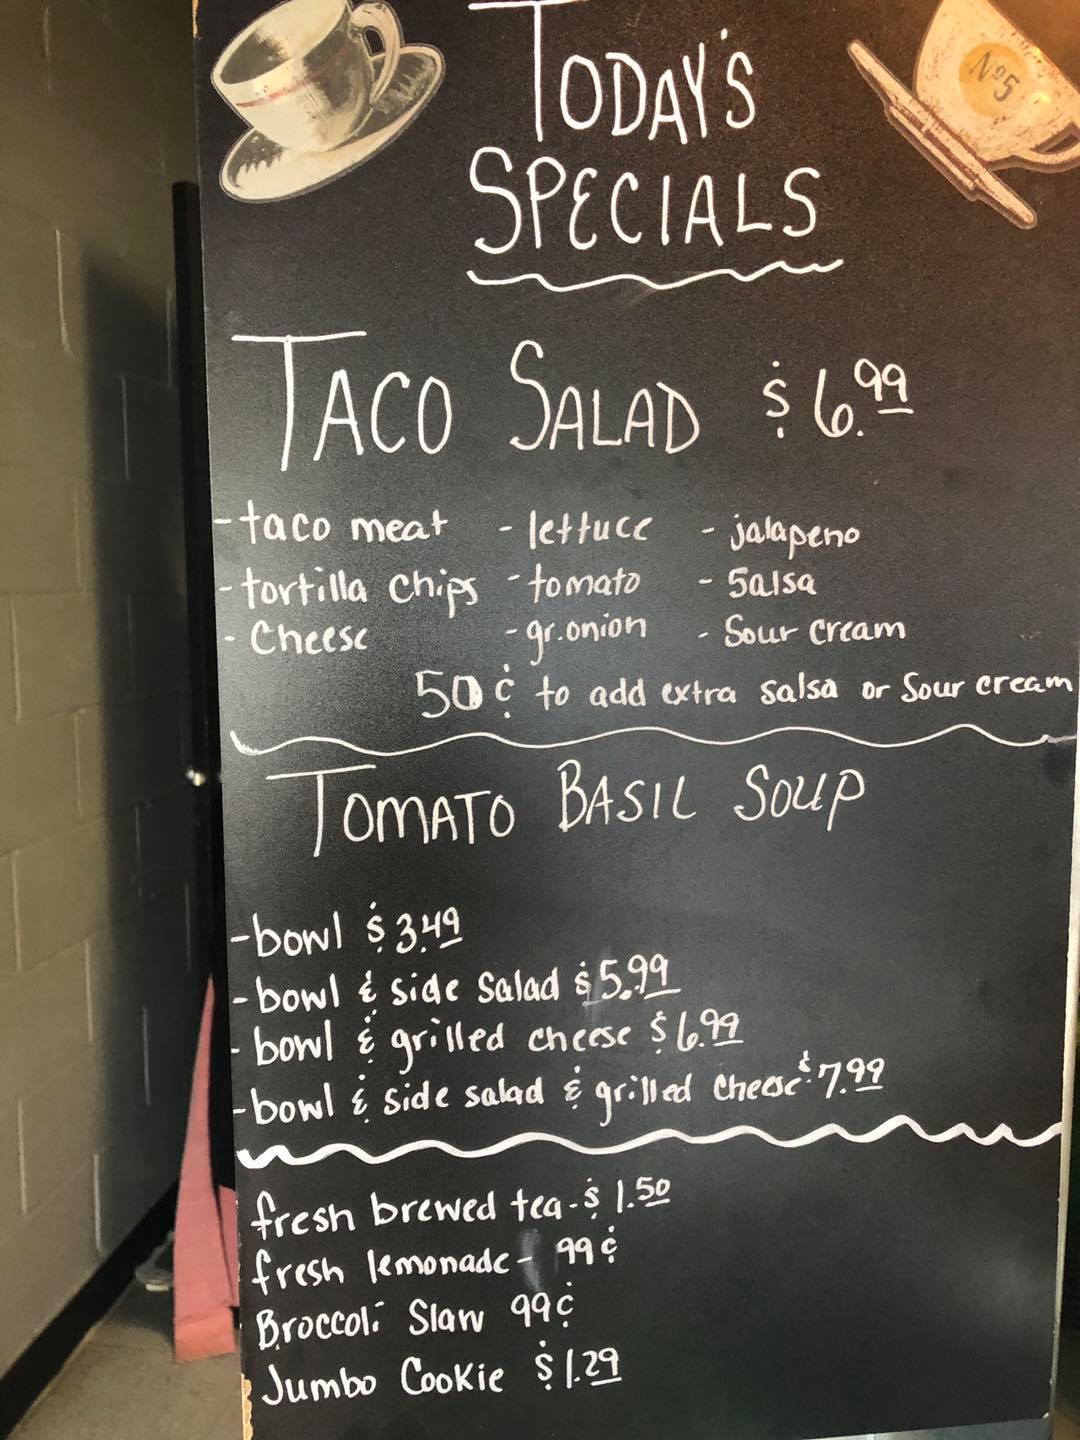 TODAY'S
SPECIALS
No 5
TACO SALAD $6.99
-taco meat -lettuce -jalapeno
-tortilla chips -tomato -salsa
-Cheese -gr.onion -Sour cream
50¢ to add extra salsa or Sour cream
TOMATO BASIL SOUP
-bowl $3.49
-bowl & side salad $5.99
-bowl & grilled cheese $6.99
-bowl & side salad & grilled cheese $7.99
fresh brewed tea-$1.50
fresh lemonade- 99¢
Broccoli Slaw 99¢
Jumbo Cookie $1.29